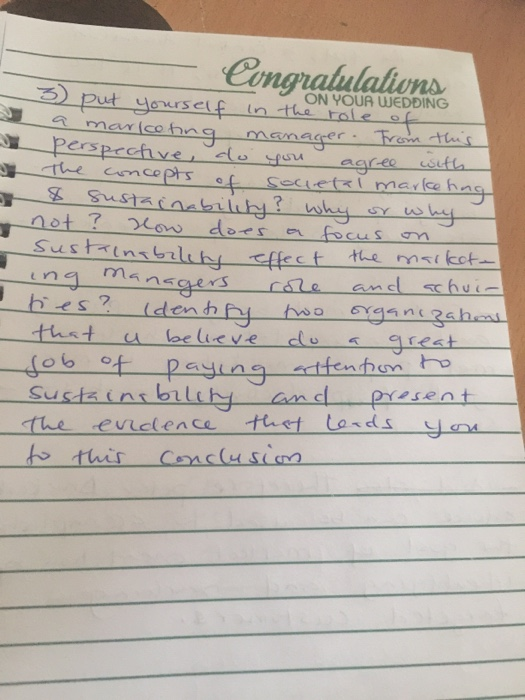 Congratulations
ON YOUR WEDDING
3) put yourself in the role of
a marketing manager. From this
perspective, do you agree with
the concepts of societal marketing
& sustainability? why or why
not? How does a focus on
sustainability effect the market-
ing managers role and activi-
ties? Identify two organizations
that u believe do a great
job of paying attention to
sustainability and present
the evidence that leads you
to this conclusion